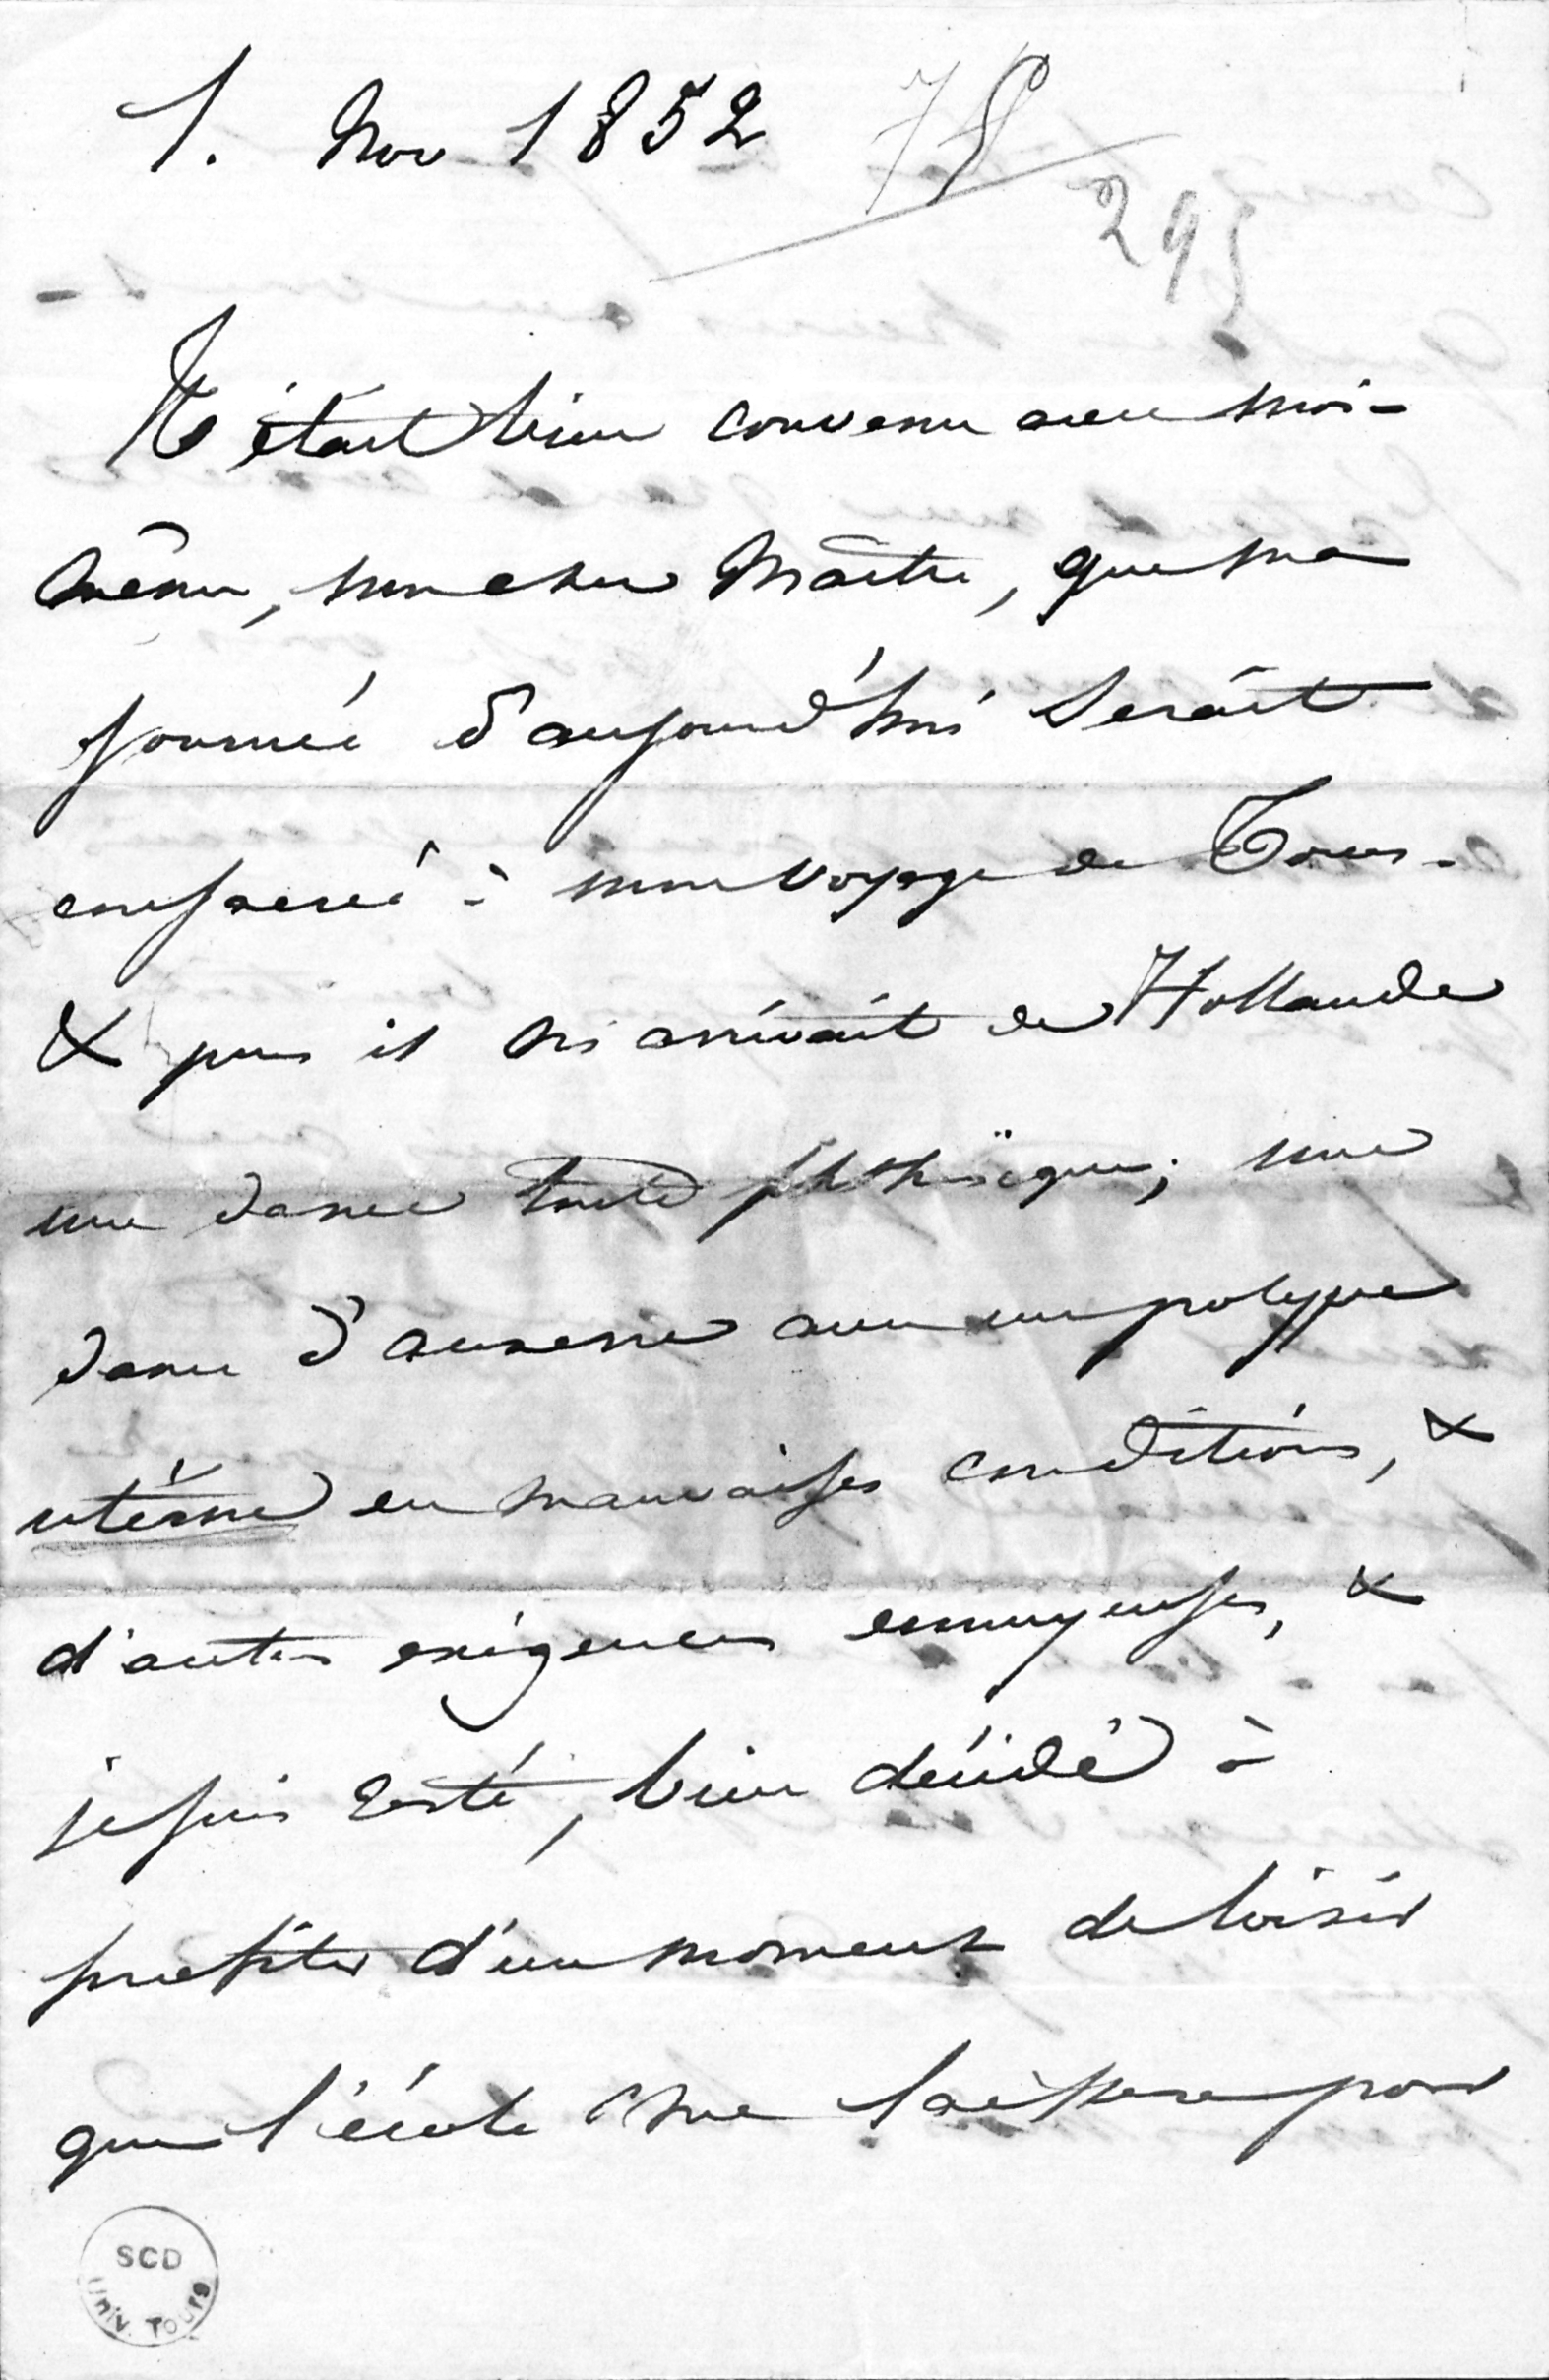 1. Nov 1852 78
295
Il était bien convenu avec moi-
même, mon cher Maître, que ma
journée d'aujourd'hui serait
consacrée à mon voyage de Tours.
& puis il m'arrivait de Hollande
une dame toute phthisïque; une
dame d'auxerre avec un polype
utérine en mauvaises conditions, &
d'autres exigences ennuyeuses, &
je suis resté, bien décidé à
profiter d'un moment de loisir
que l'école me laissera pour
SCD
Univ. Tours